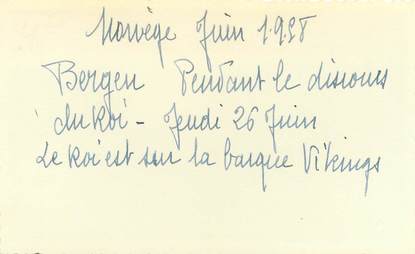 Norvège Juin 1.958
Bergen Pendant le discours
du Roi - Jeudi 26 Juin
Le Roi est sur la barque Vikings